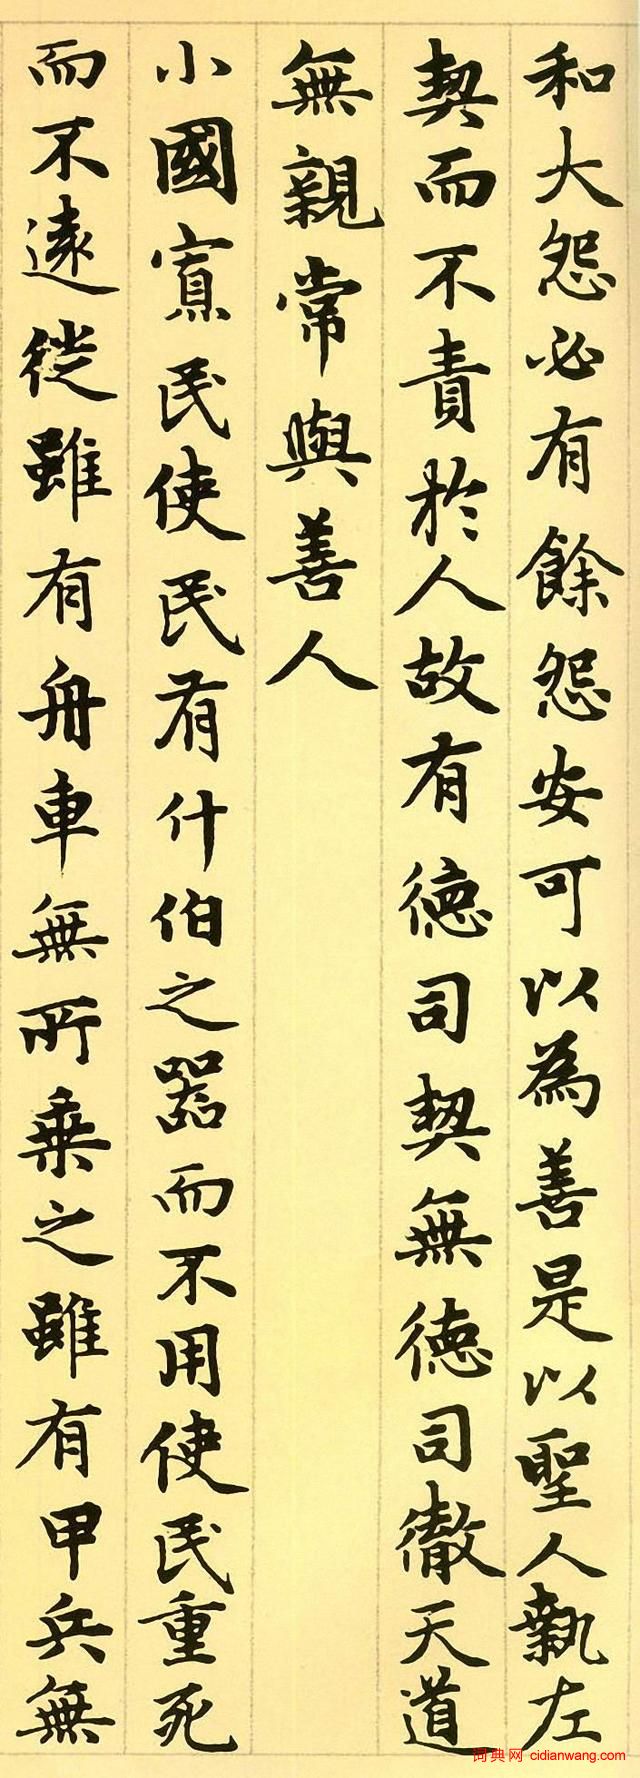 和大怨必有餘怨安可以為善是以聖人執左
契而不責於人故有德司契無德司徹天道
無親常與善人
小國寡民使民有什伯之器而不用使民重死
而不遠徙雖有舟車無所乘之雖有甲兵無
词典网 cidianwang.com